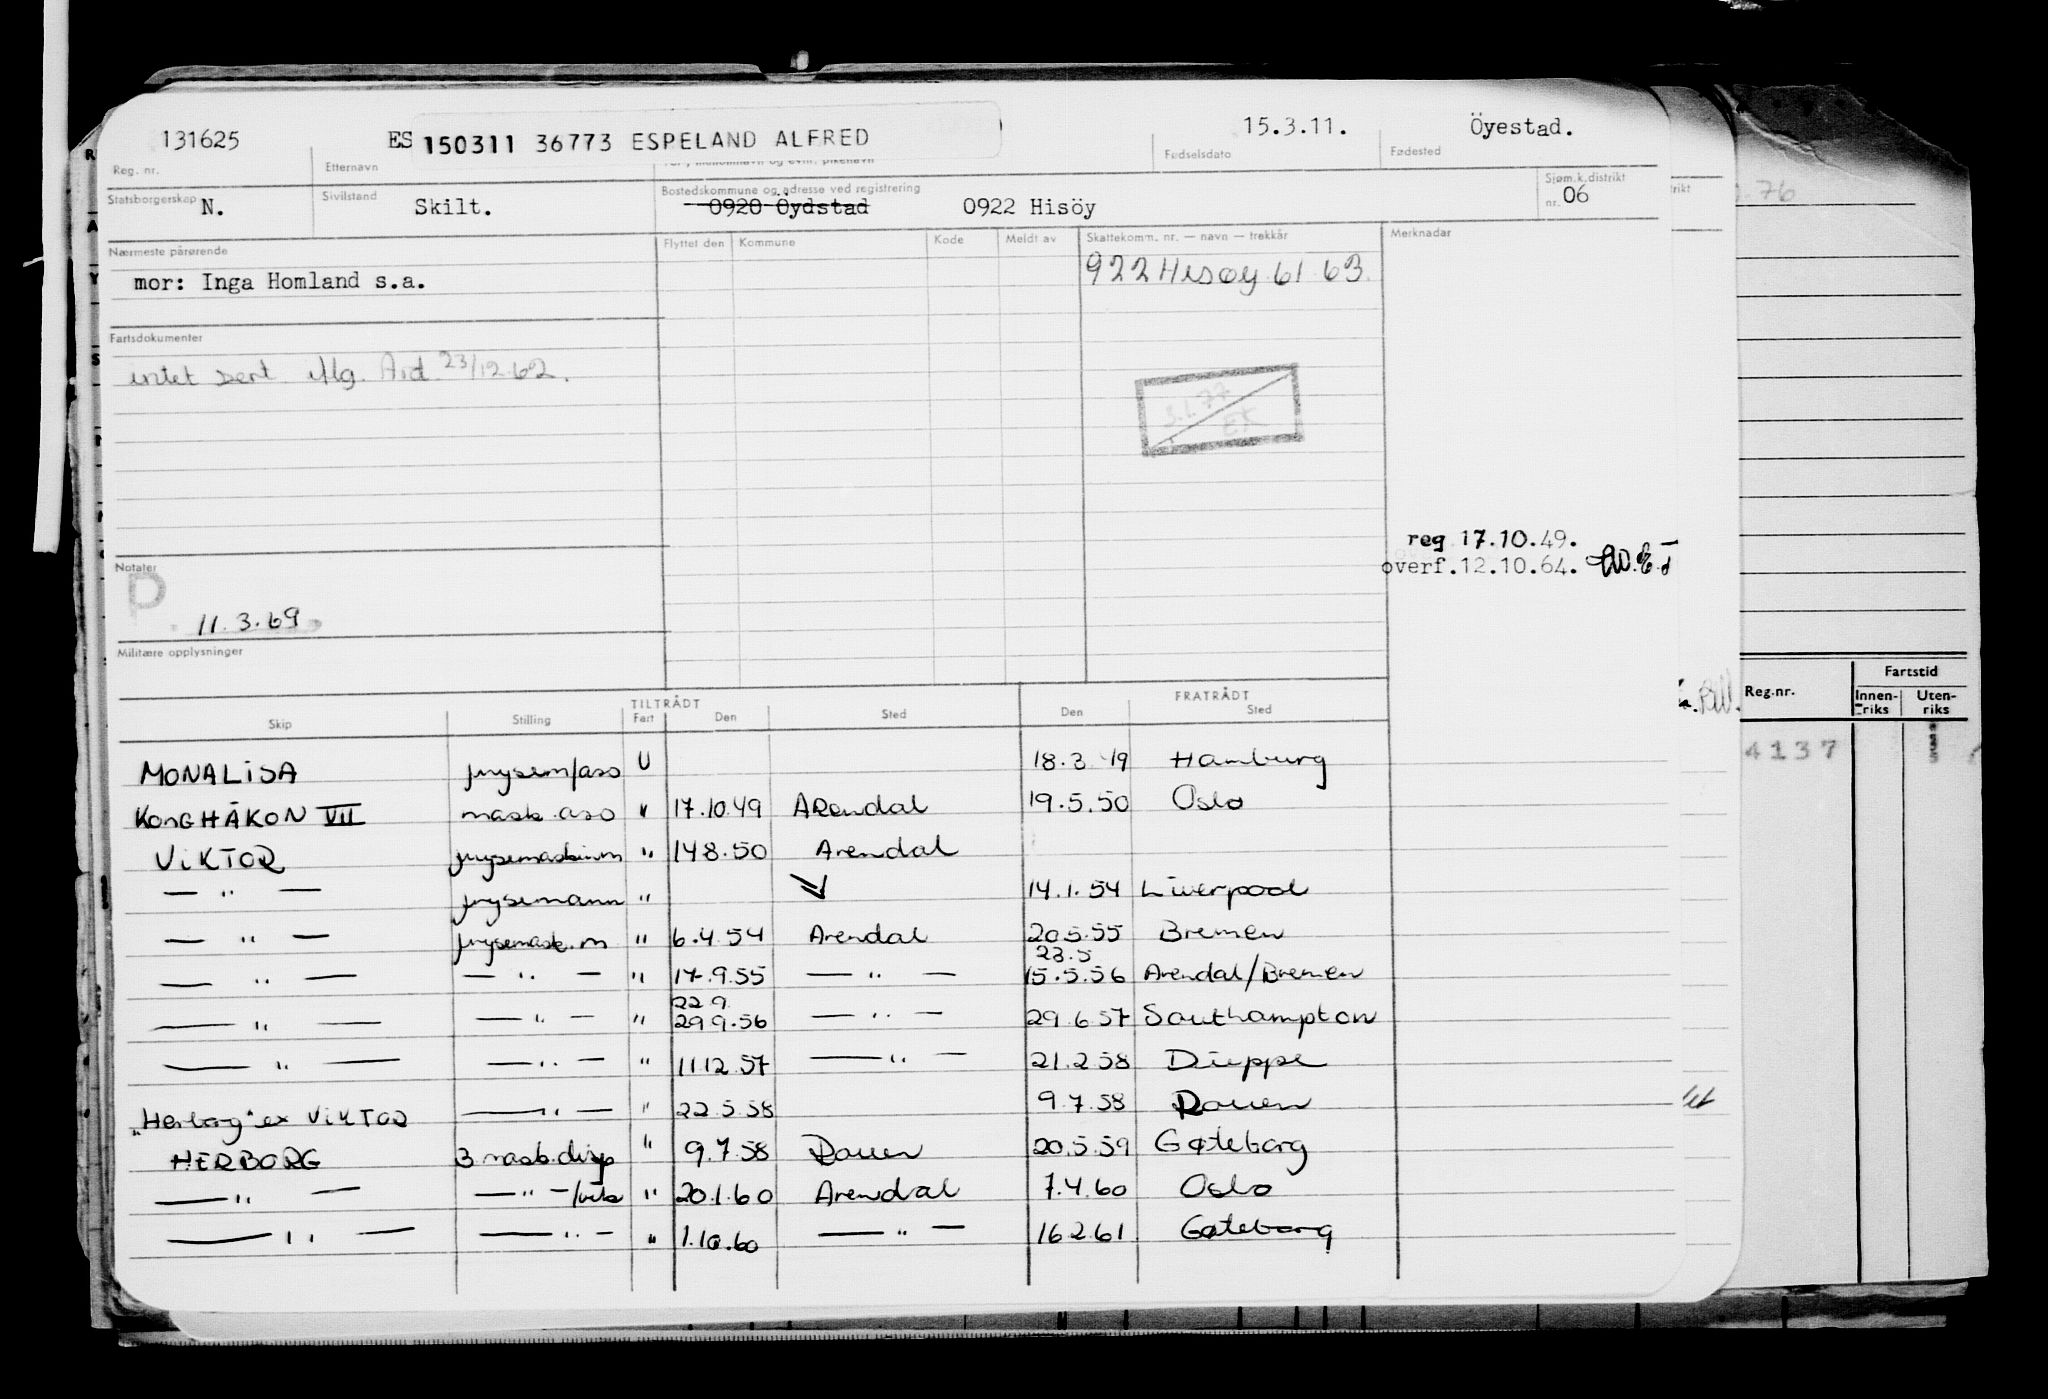 131625 ES 150311 36773 ESPELAND ALFRED 15.3.11. Öyestad.
Reg. nr. Etternavn Fødselsdato Fødested
Statsborgerskap N. Sivilstand Skilt. Bostedskommune og adresse ved registrering 0920 Öydstad 0922 Hisöy Sjøm.k.distrikt nr. 06
Nærmeste pårørende Flyttet den Kommune Kode Meldt av Skattekomm. nr. — navn — trekkår Merknadar
mor: Inga Homland s.a. 922 Hisøy 61 63
Fartsdokumenter
intet sert iflg. Ard 23/12.62.
3.1.77
EK
reg 17.10.49.
overf.12.10.64.
Notater
P
11.3.69
Militære opplysninger
TILTRÅDT FRATRÅDT
Skip Stilling Fart Den Sted Den Sted
MONALISA U 18.3.49 Hamburg
KONG HÅKON VII mask.ass " 17.10.49 Arendal 19.5.50 Oslo
VIKTOR frysemaskinm " 14 8.50 Arendal
— " — frysemann " 14.1.54 Liverpool
— " — frysemask.m " 6.4.54 Arendal 20.5.55 Bremen
23.5
— " — — " — " 17.9.55 — " — 15.5.56 Arendal/Bremen
22 9
— " — — " — " 29 9.56 — " — 29.6.57 Southampton
— " — — " — " 11.12.57 — " — 21.2.58 Dieppe
"Herborg" ex VIKTOR — " — " 22.5.58 9.7.58 Rouen
HERBORG 3 mask.disp " 9.7.58 Rouen 20.5.59 Gøteborg
— " — — " — " 20.1.60 Arendal 7.4.60 Oslo
— " — — " — " 1.10.60 — " — 16.2.61 Gøteborg
76
Reg.nr. Fartstid
Innen-riks Uten-riks
4137